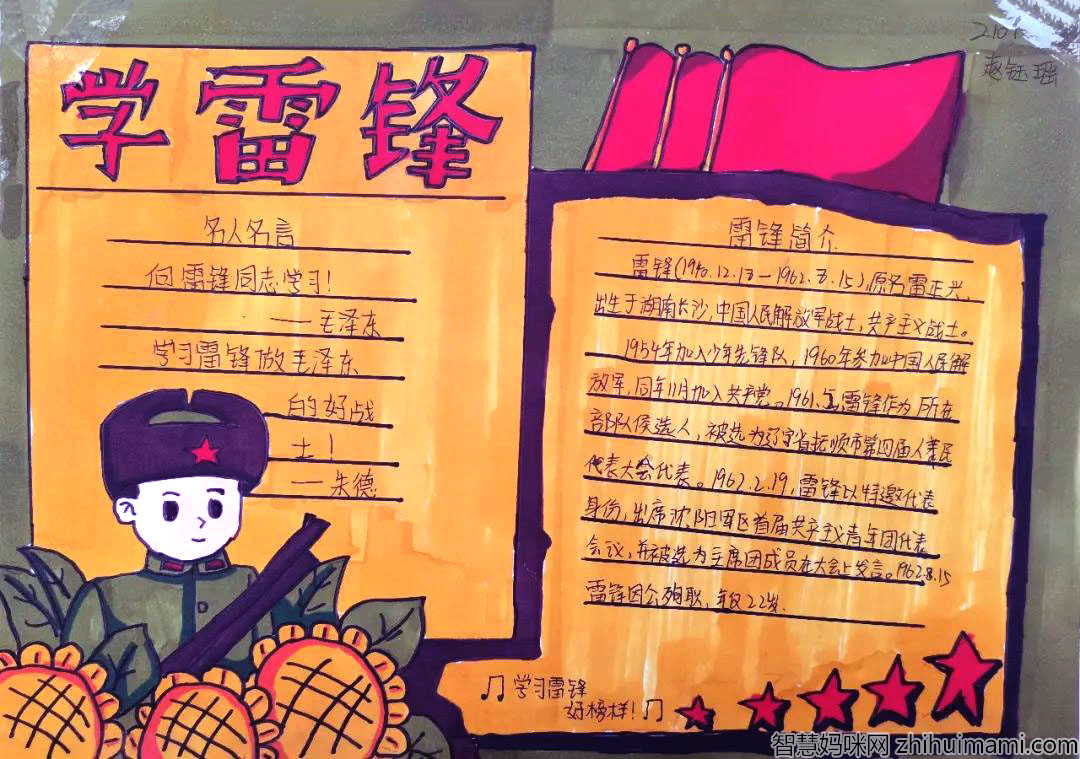 学雷锋
名人名言
向雷锋同志学习!
——毛泽东
学习雷锋做毛泽东
的好战
士!
——朱德
210
赵钰瑶
雷锋简介
雷锋(1940.12.18—1962.8.15),原名雷正兴,
出生于湖南长沙,中国人民解放军战士,共产主义战士。
1954年加入少年先锋队,1960年参加中国人民解
放军,同年11月加入共产党。1961,雷锋作为所在
部队候选人,被选为辽宁省抚顺市第四届人民
代表大会代表。1962.2.19,雷锋以特邀代表
身份,出席沈阳军区首届共产主义青年团代表
会议,并被选为主席团成员在大会上发言。1962.8.15
雷锋因公殉职,年仅22岁.
♫学习雷锋
好榜样!♫
智慧妈咪网 zhihuimami.com